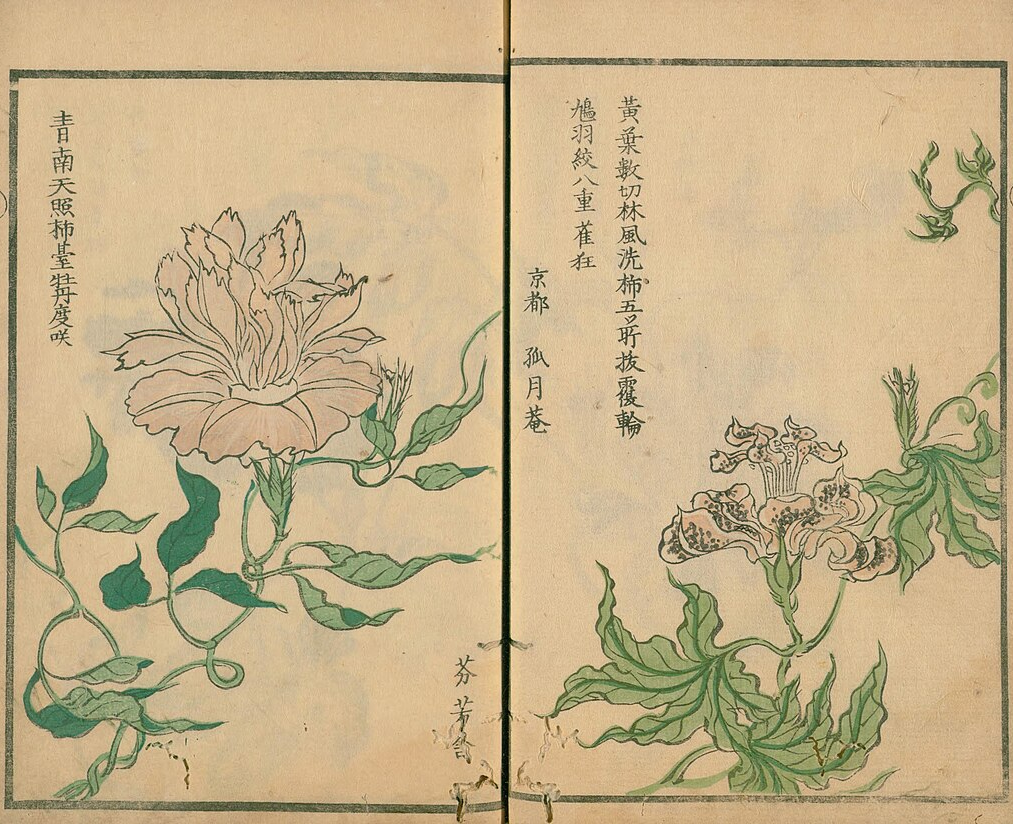 黄葉數切林風洗柿五分斫抜覆輪
鳩羽絞八重雀狂
京都　孤月菴
青南天照柿臺牡丹度咲
芬芳舎